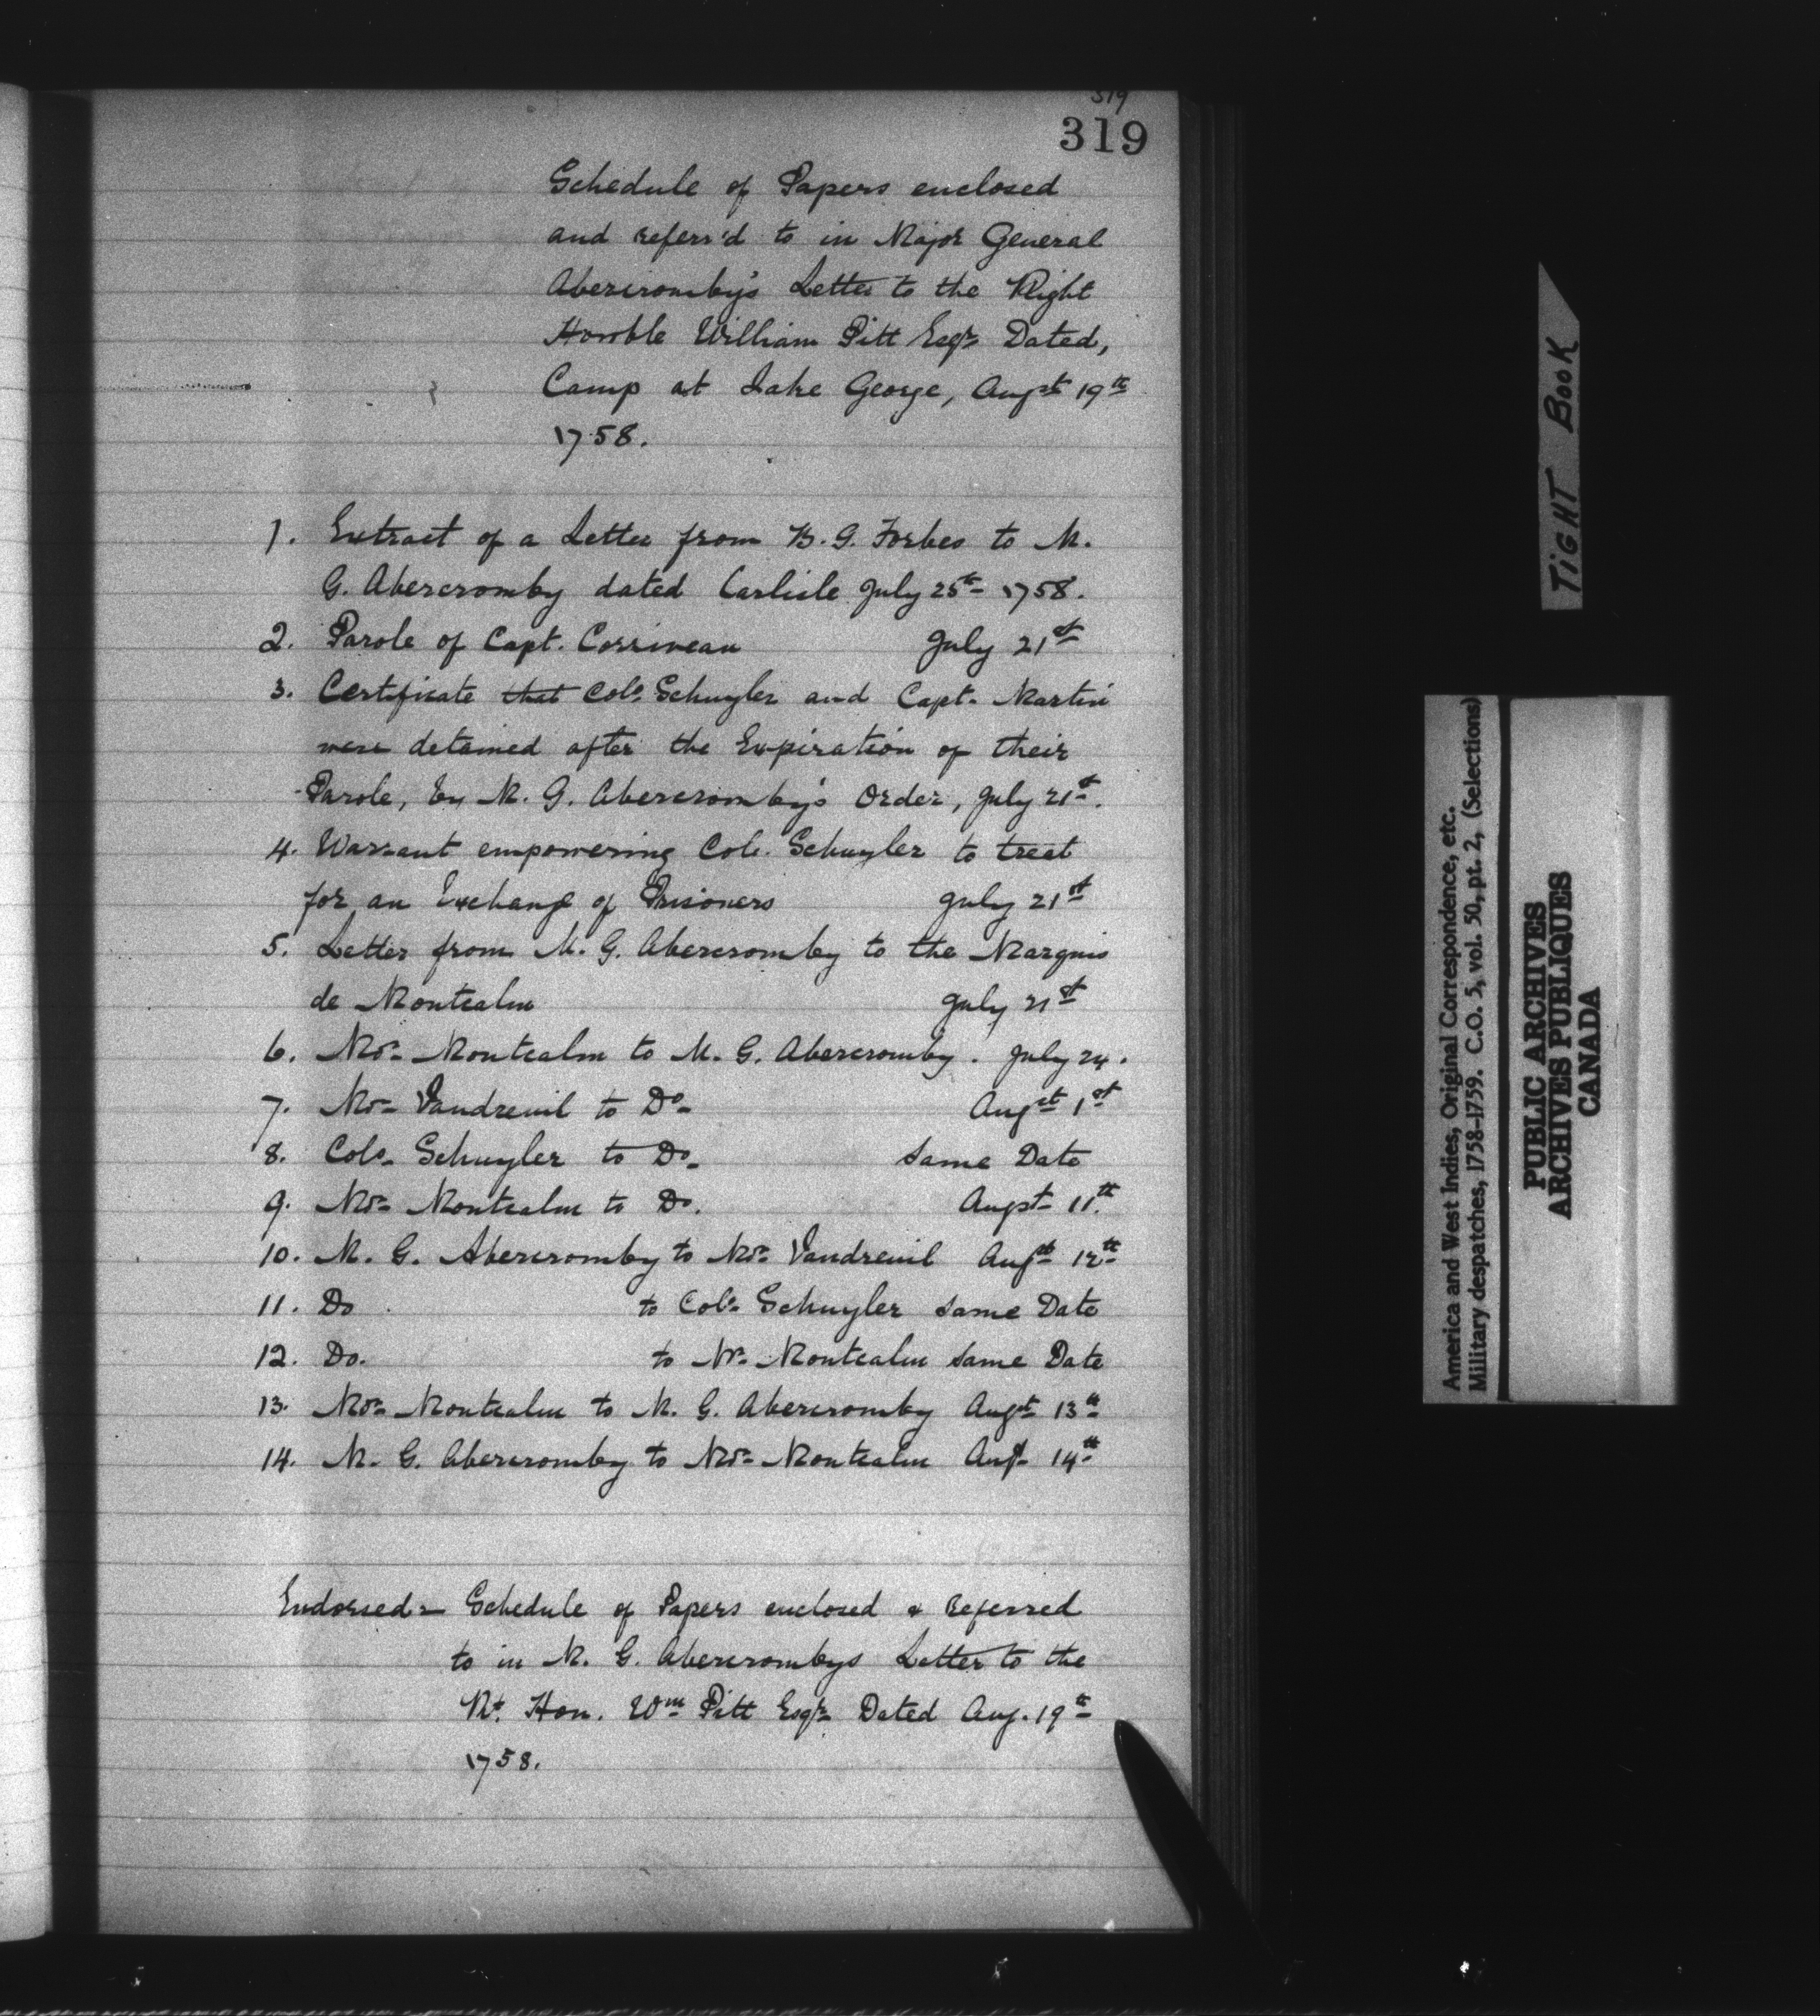 319
319
Schedule of Papers enclosed
and referr'd to in Major General
Abercromby's Letter to the Right
Honble William Pitt Esqr. Dated,
Camp at Lake George, Augst 19th
1758.
1. Extract of a Letter from B. G. Forbes to M.
G. Abercromby dated Carlisle July 25th 1758.
2. Parole of Capt. Corriveau July 21st
3. Certificate that Colo. Schuyler and Capt. Martin
were detained after the Expiration of their
Parole, by M. G. Abercromby's Order, July 21st.
4. Warrant empowering Colo. Schuyler to treat
for an Exchange of Prisoners July 21st
5. Letter from M. G. Abercromby to the Marquis
de Montcalm July 21st
6. Mor. Montcalm to M. G. Abercromby. July 24.
7. Mor. Vaudreuil to Do. Augst 1st
8. Colo. Schuyler to Do. Same Date
9. Mor. Montcalm to Do. Augst 11th
10. M. G. Abercromby to Mor. Vaudreuil Augst 12th
11. Do to Colo. Schuyler Same Date
12. Do. to Mr. Montcalm Same Date
13. Mor. Montcalm to M. G. Abercromby Augst 13th
14. M. G. Abercromby to Mor. Montcalm Augt 14th
Endorsed:- Schedule of Papers enclosed & Referred
to in M. G. Abercrombys Letter to the
Rt. Hon. Wm Pitt Esqr. Dated Aug. 19th
1758.
TIGHT BOOK
America and West Indies, Original Correspondence, etc.
Military despatches, 1758-1759. C.O. 5, vol. 50, pt. 2, (Selections)
PUBLIC ARCHIVES
ARCHIVES PUBLIQUES
CANADA